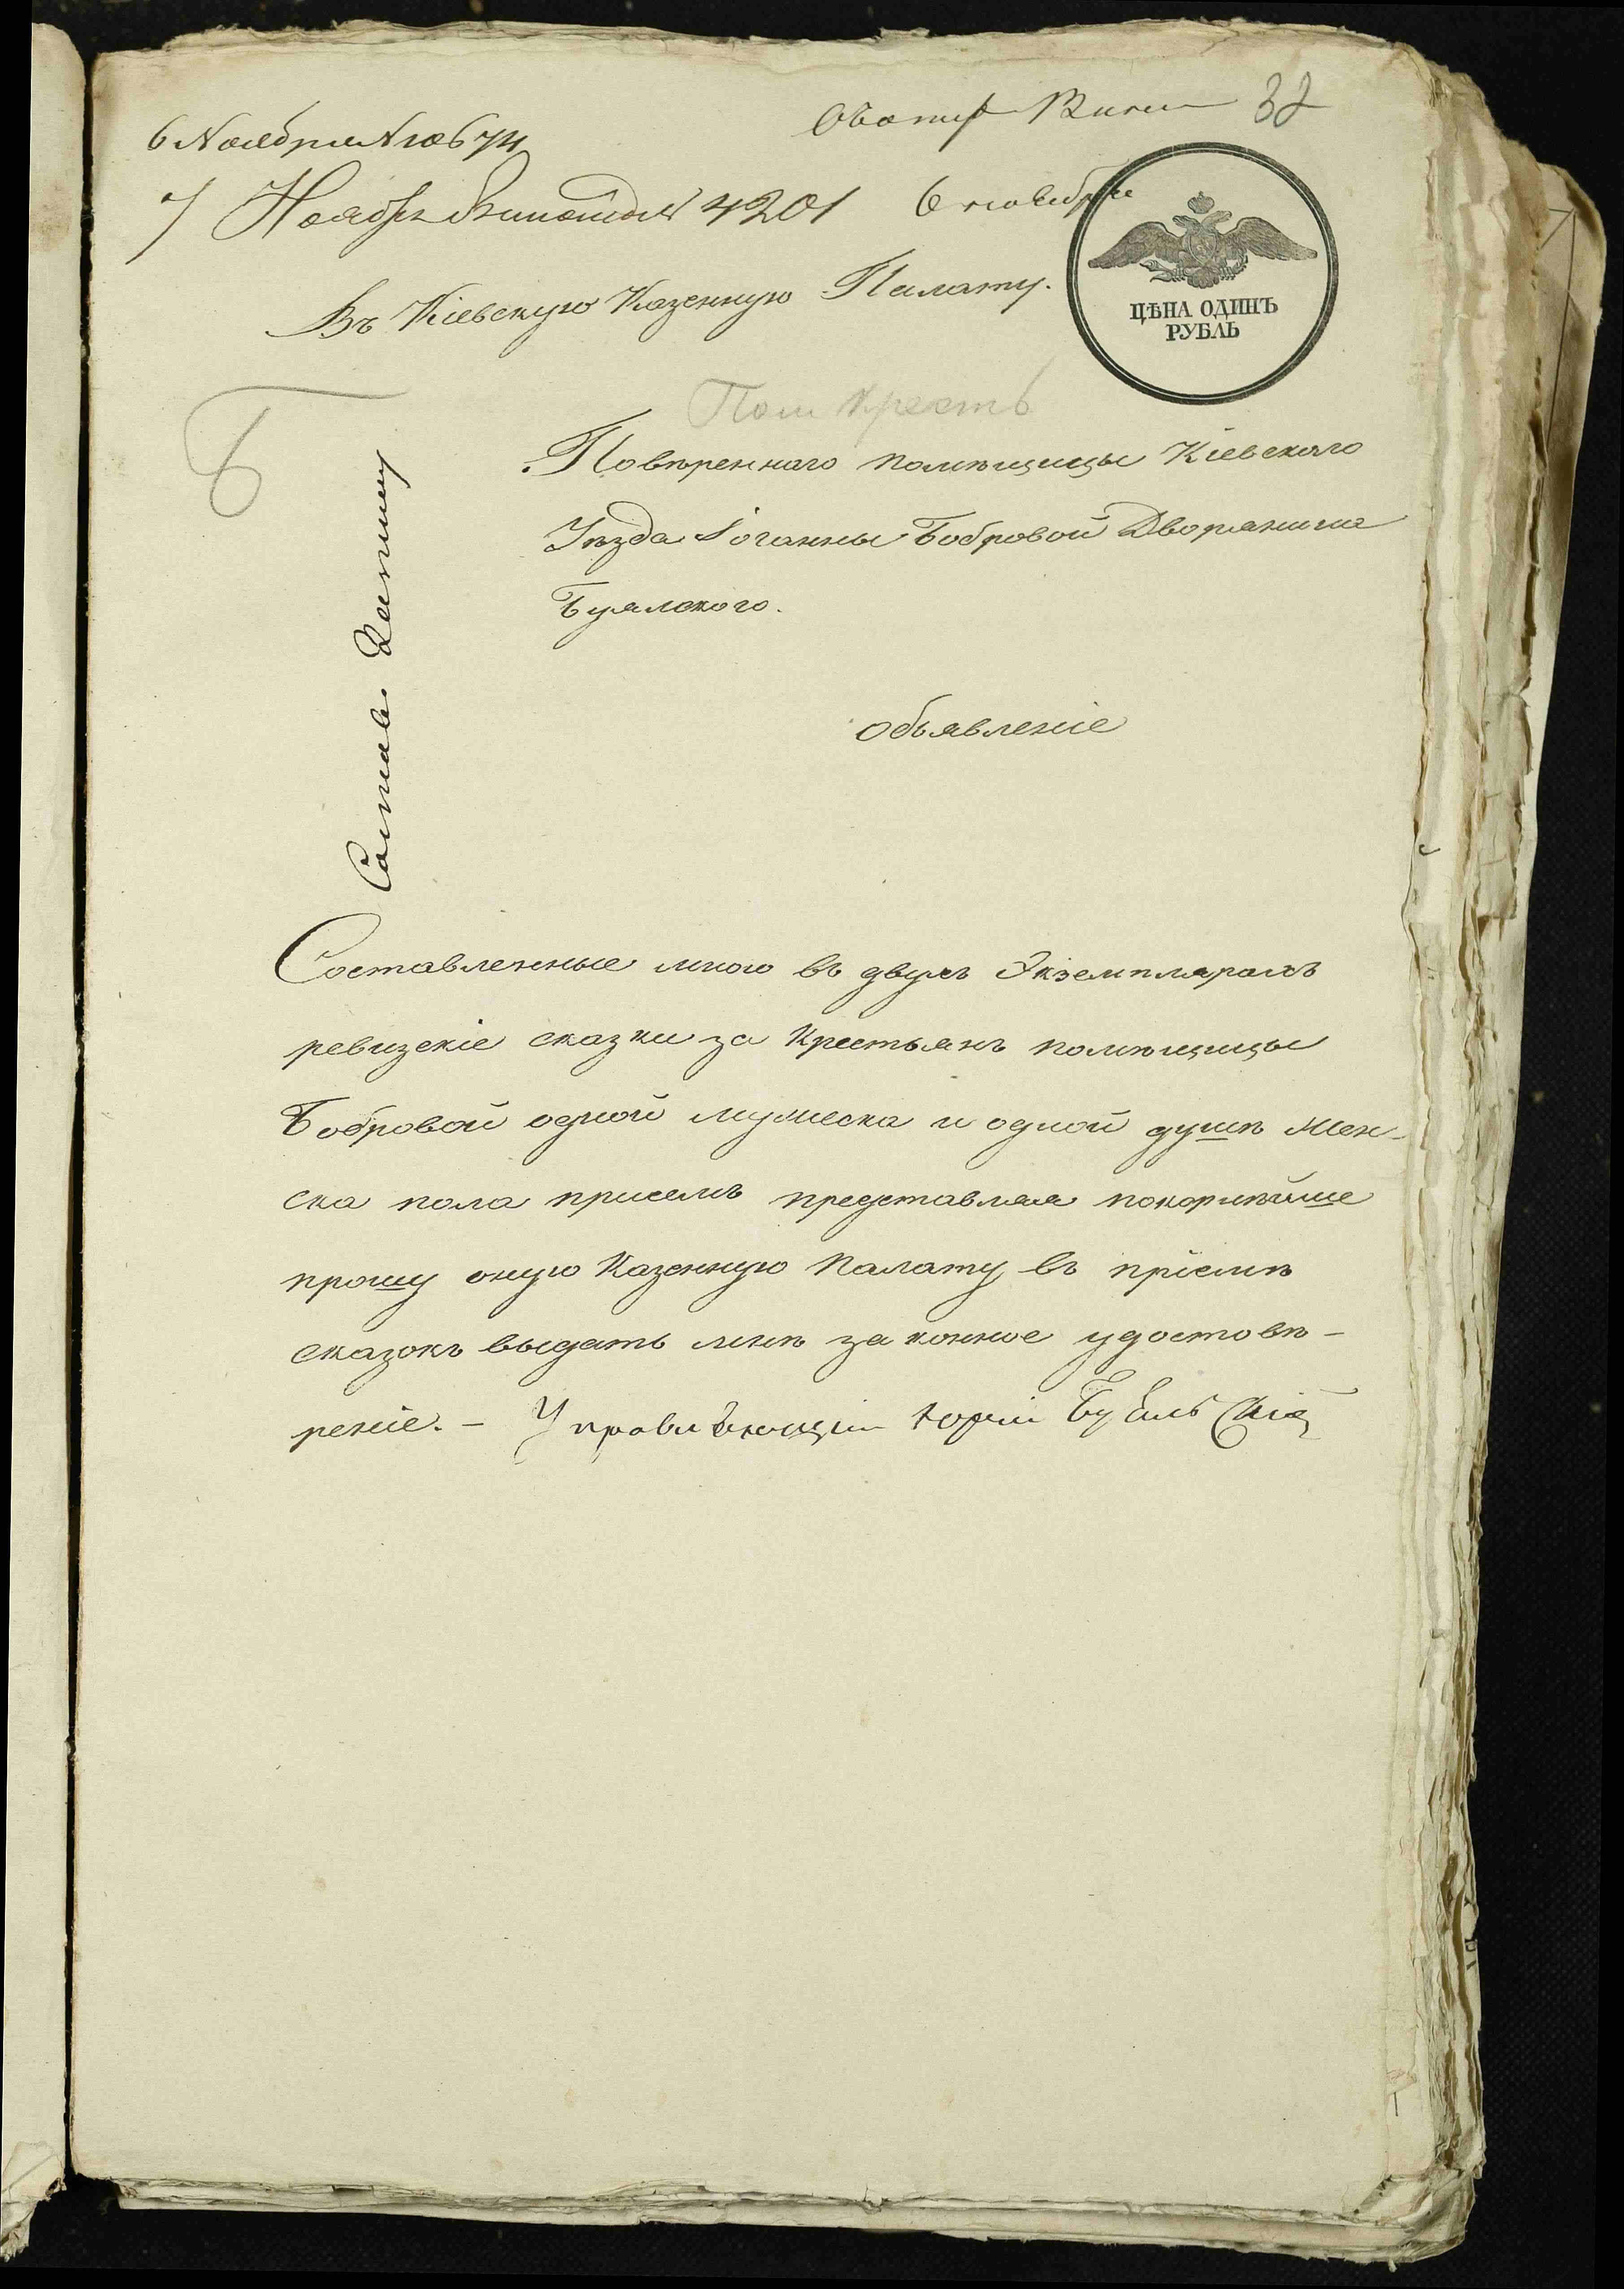 32
6 Ноября № 10674
7 Ноября 4201 6 ноября
ЦѢНА ОДИНЪ
РУБЛЬ
Въ Кіевскую Казенную Палату.
Б
Пом крест
Повѣреннаго помѣщицы Кіевскаго
Уѣзда Іоганны Бобровой Дворянина
Буялского.
Объявленіе
Составленные мною въ двухъ Экземплярахъ
ревизскіе сказки за Крестьянъ помѣщицы
Бобровой одной мужеска и одной душѣ жен-
ска пола присемъ представляя покорнѣйше
прошу оную Казенную Палату въ пріемѣ
сказокъ выдать мнѣ законное удостовѣ-
реніе. – Управляющій Юрій